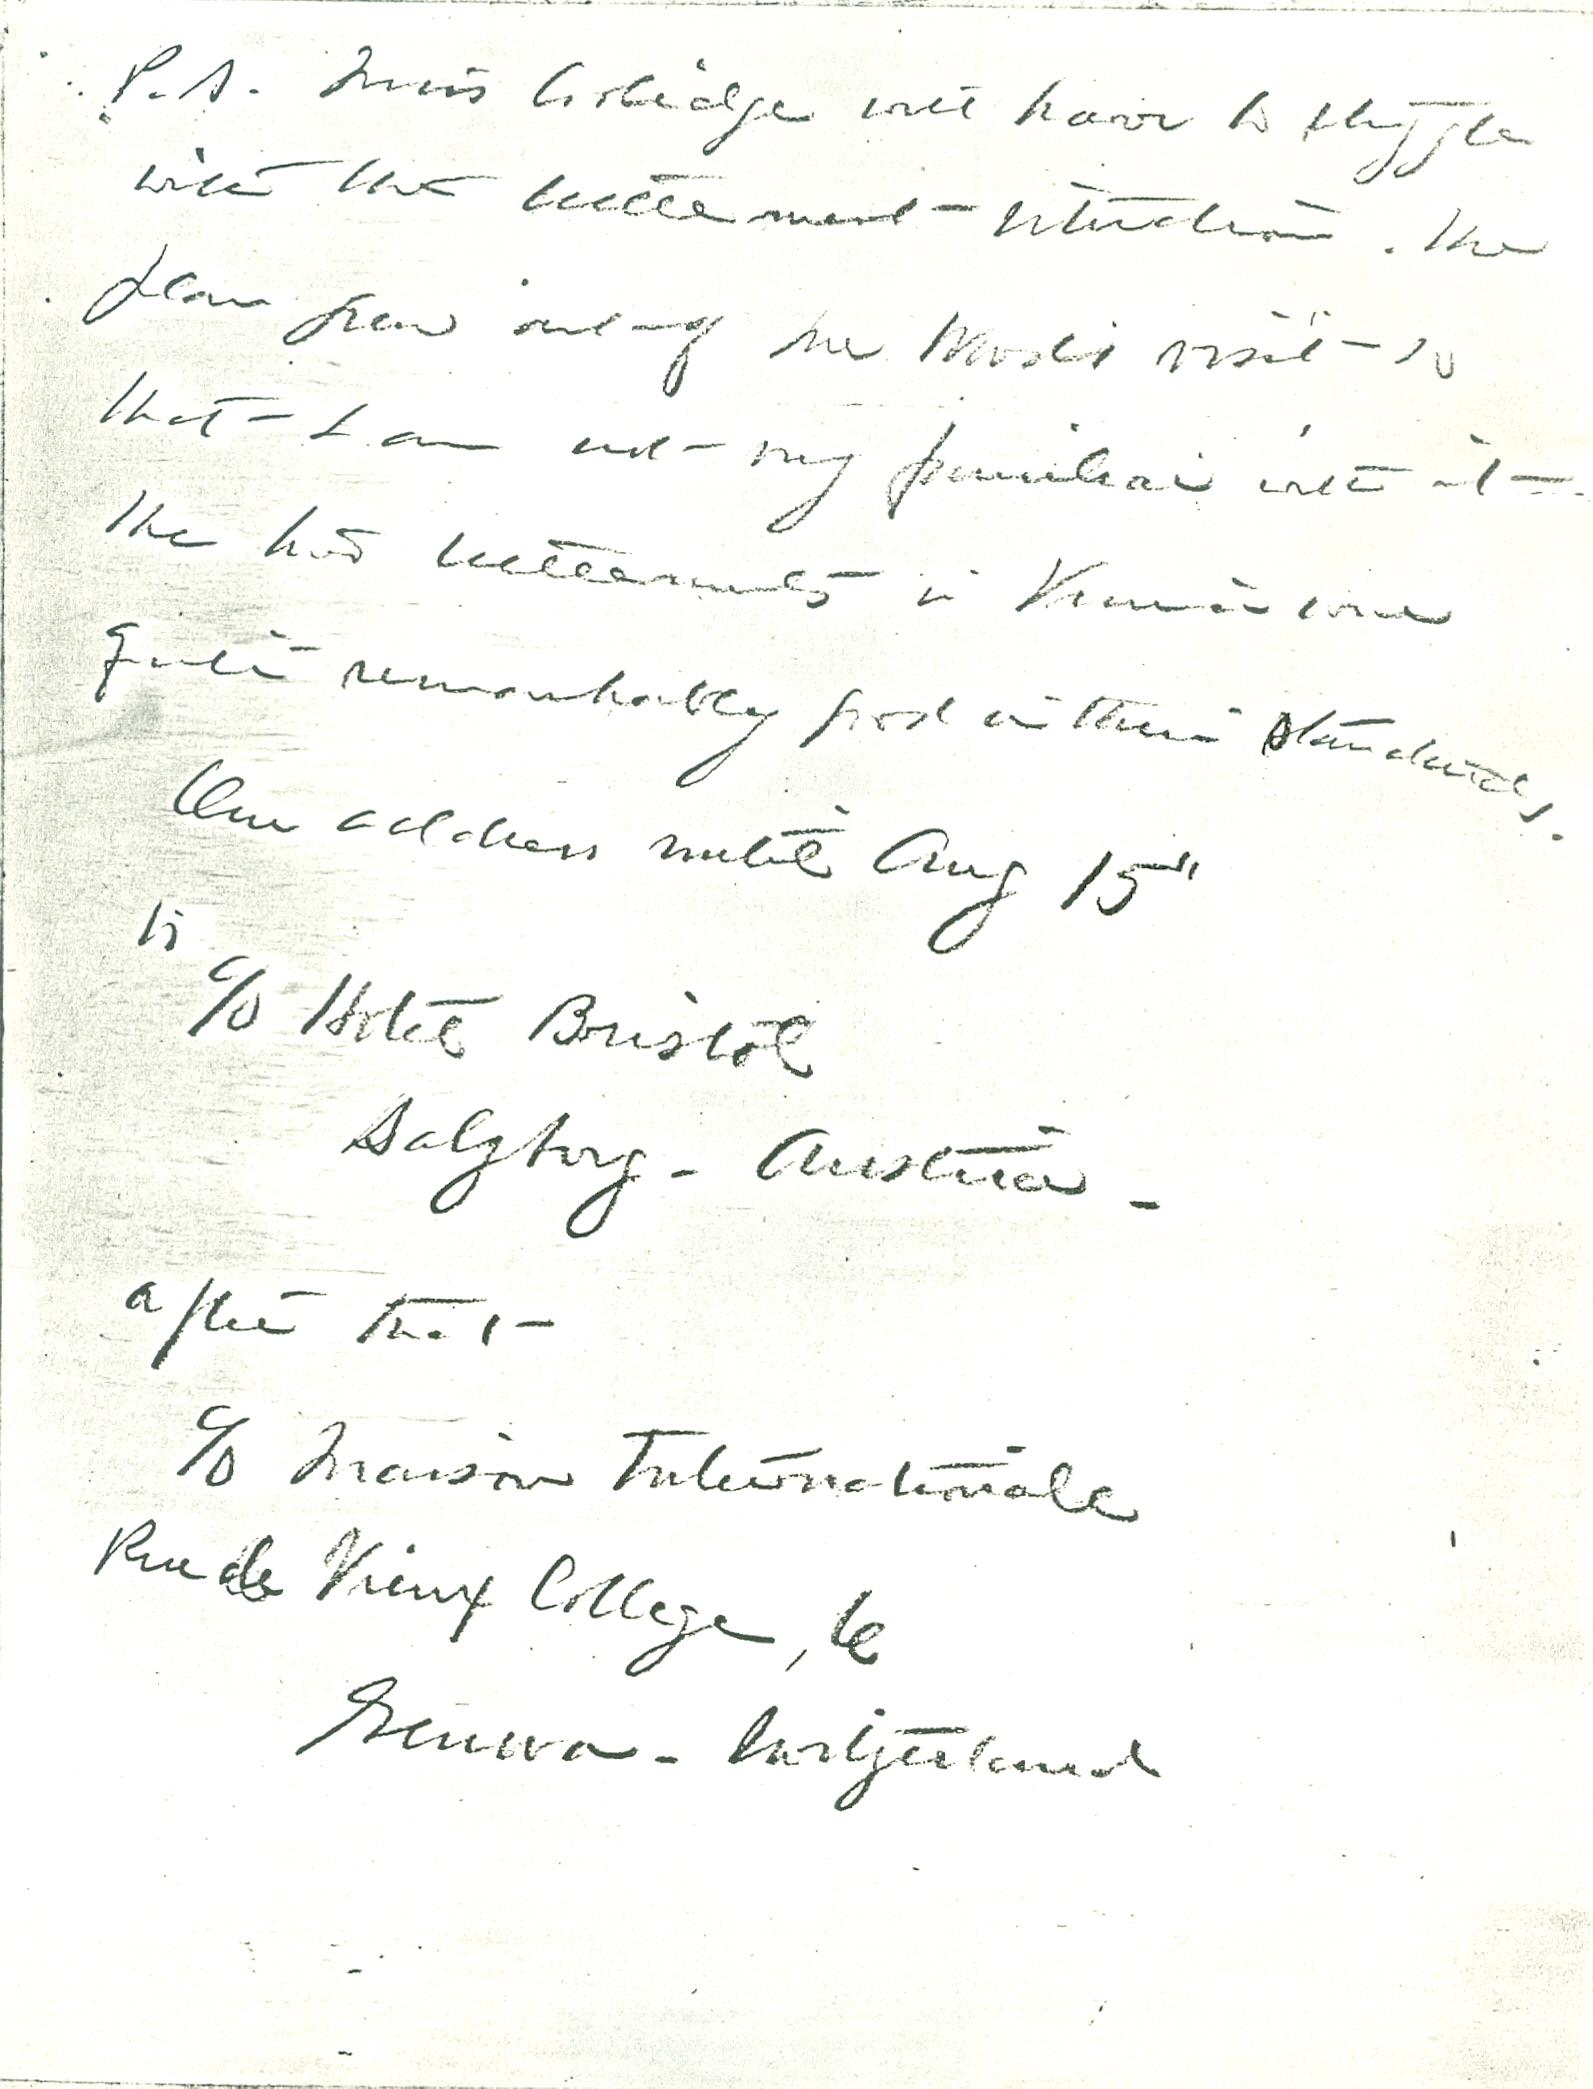 P.S. Miss Coolidge will have to struggle
with the settlement - situation. The
plan grew out of her visit - so
that - I am not - very familiar with it -
The two settlements in Vienna were
quite remarkably good in their standards.
Our address until Aug 15th
is
c/o Hotel Bristol
Salzburg - Austria -
after that -
c/o Maison Internationale
Rue de Vieux College, 
Geneva - Switzerland